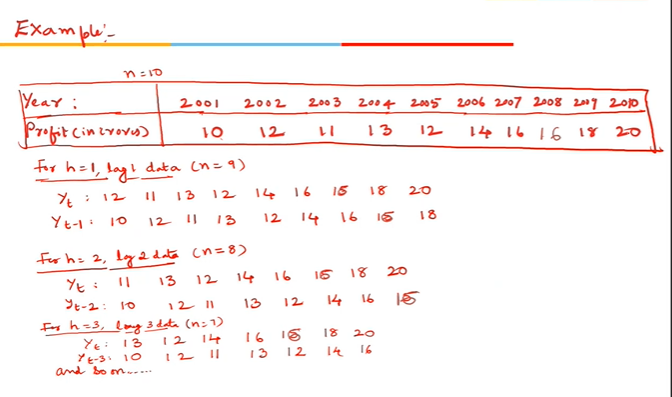 Example:-
n=10
Year : 2001 2002 2003 2004 2005 2006 2007 2008 2009 2010
Profit (in crores) 10 12 11 13 12 14 16 16 18 20
For h=1, lag 1 data (n=9)
Yt : 12 11 13 12 14 16 15 18 20
Yt-1 : 10 12 11 13 12 14 16 15 18
For h=2, lag 2 data (n=8)
Yt : 11 13 12 14 16 15 18 20
Yt-2 : 10 12 11 13 12 14 16 15
For h=3, lag 3 data (n=7)
Yt : 13 12 14 16 15 18 20
Yt-3 : 10 12 11 13 12 14 16
and so on.....